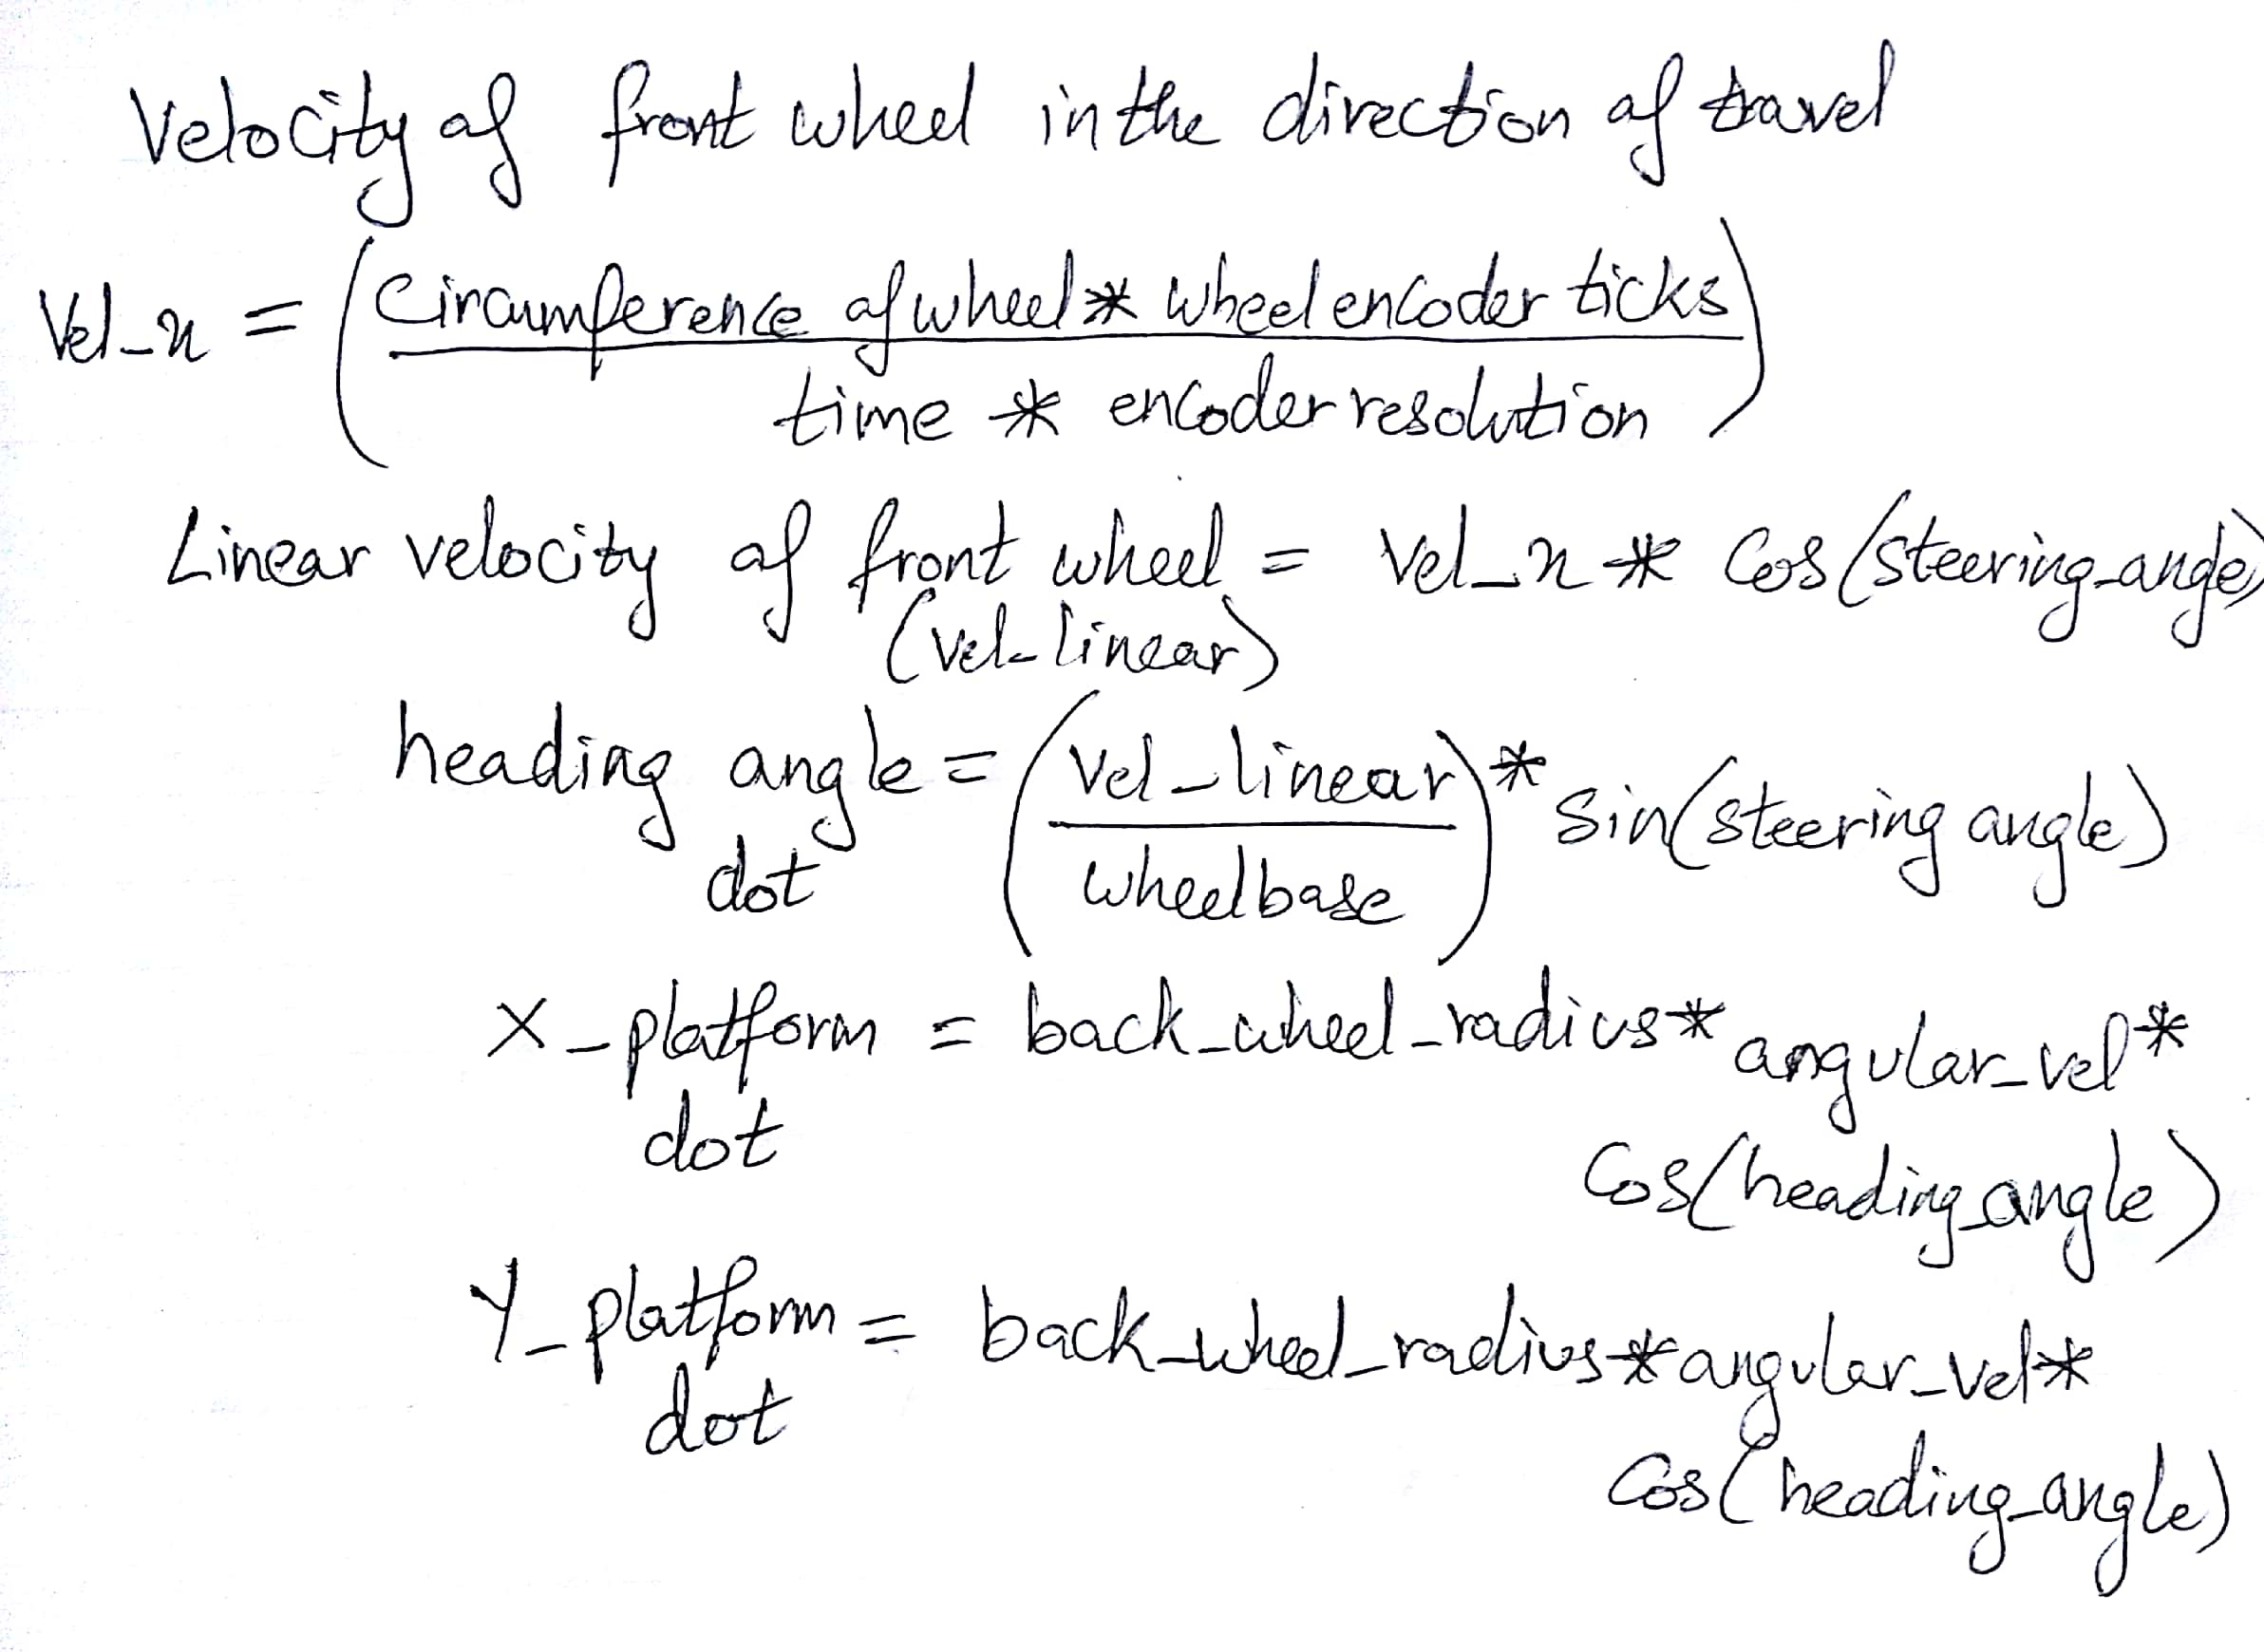 Velocity of front wheel in the direction of travel
Vel_x = (Circumference of wheel * wheel encoder ticks)
time * encoder resolution
Linear velocity of front wheel = Vel_x * Cos(steering_angle)
(vel_linear)
heading angle = (Vel_linear) * Sin(steering angle)
dot wheelbase
X_platform = back_wheel_radius * angular_vel *
dot
Cos(heading_angle)
Y_platform = back_wheel_radius * angular_vel *
dot
Cos(heading_angle)